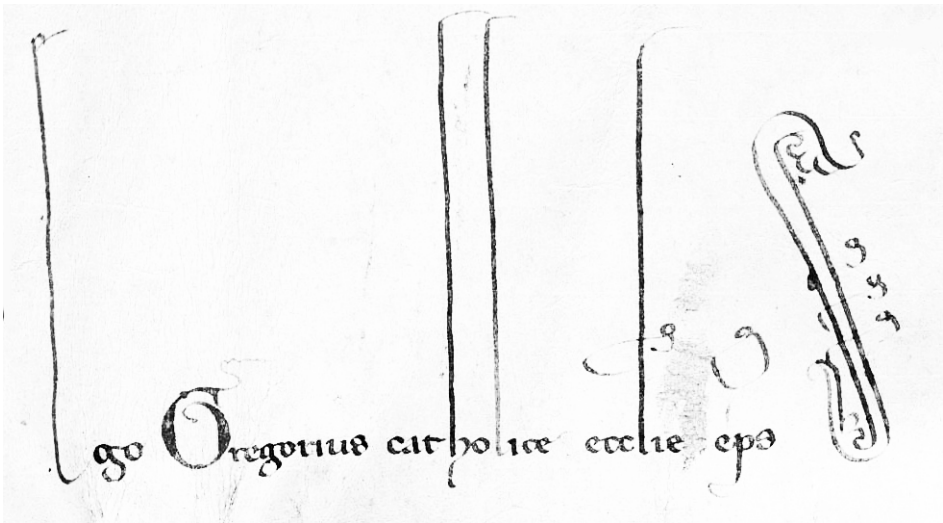 Ego Gregorius catholice ecclie eps